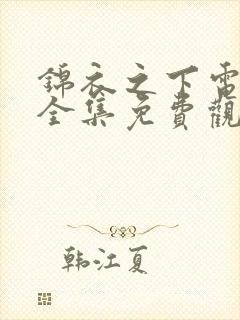 錦衣之下電
全集免費觀
韩江夏